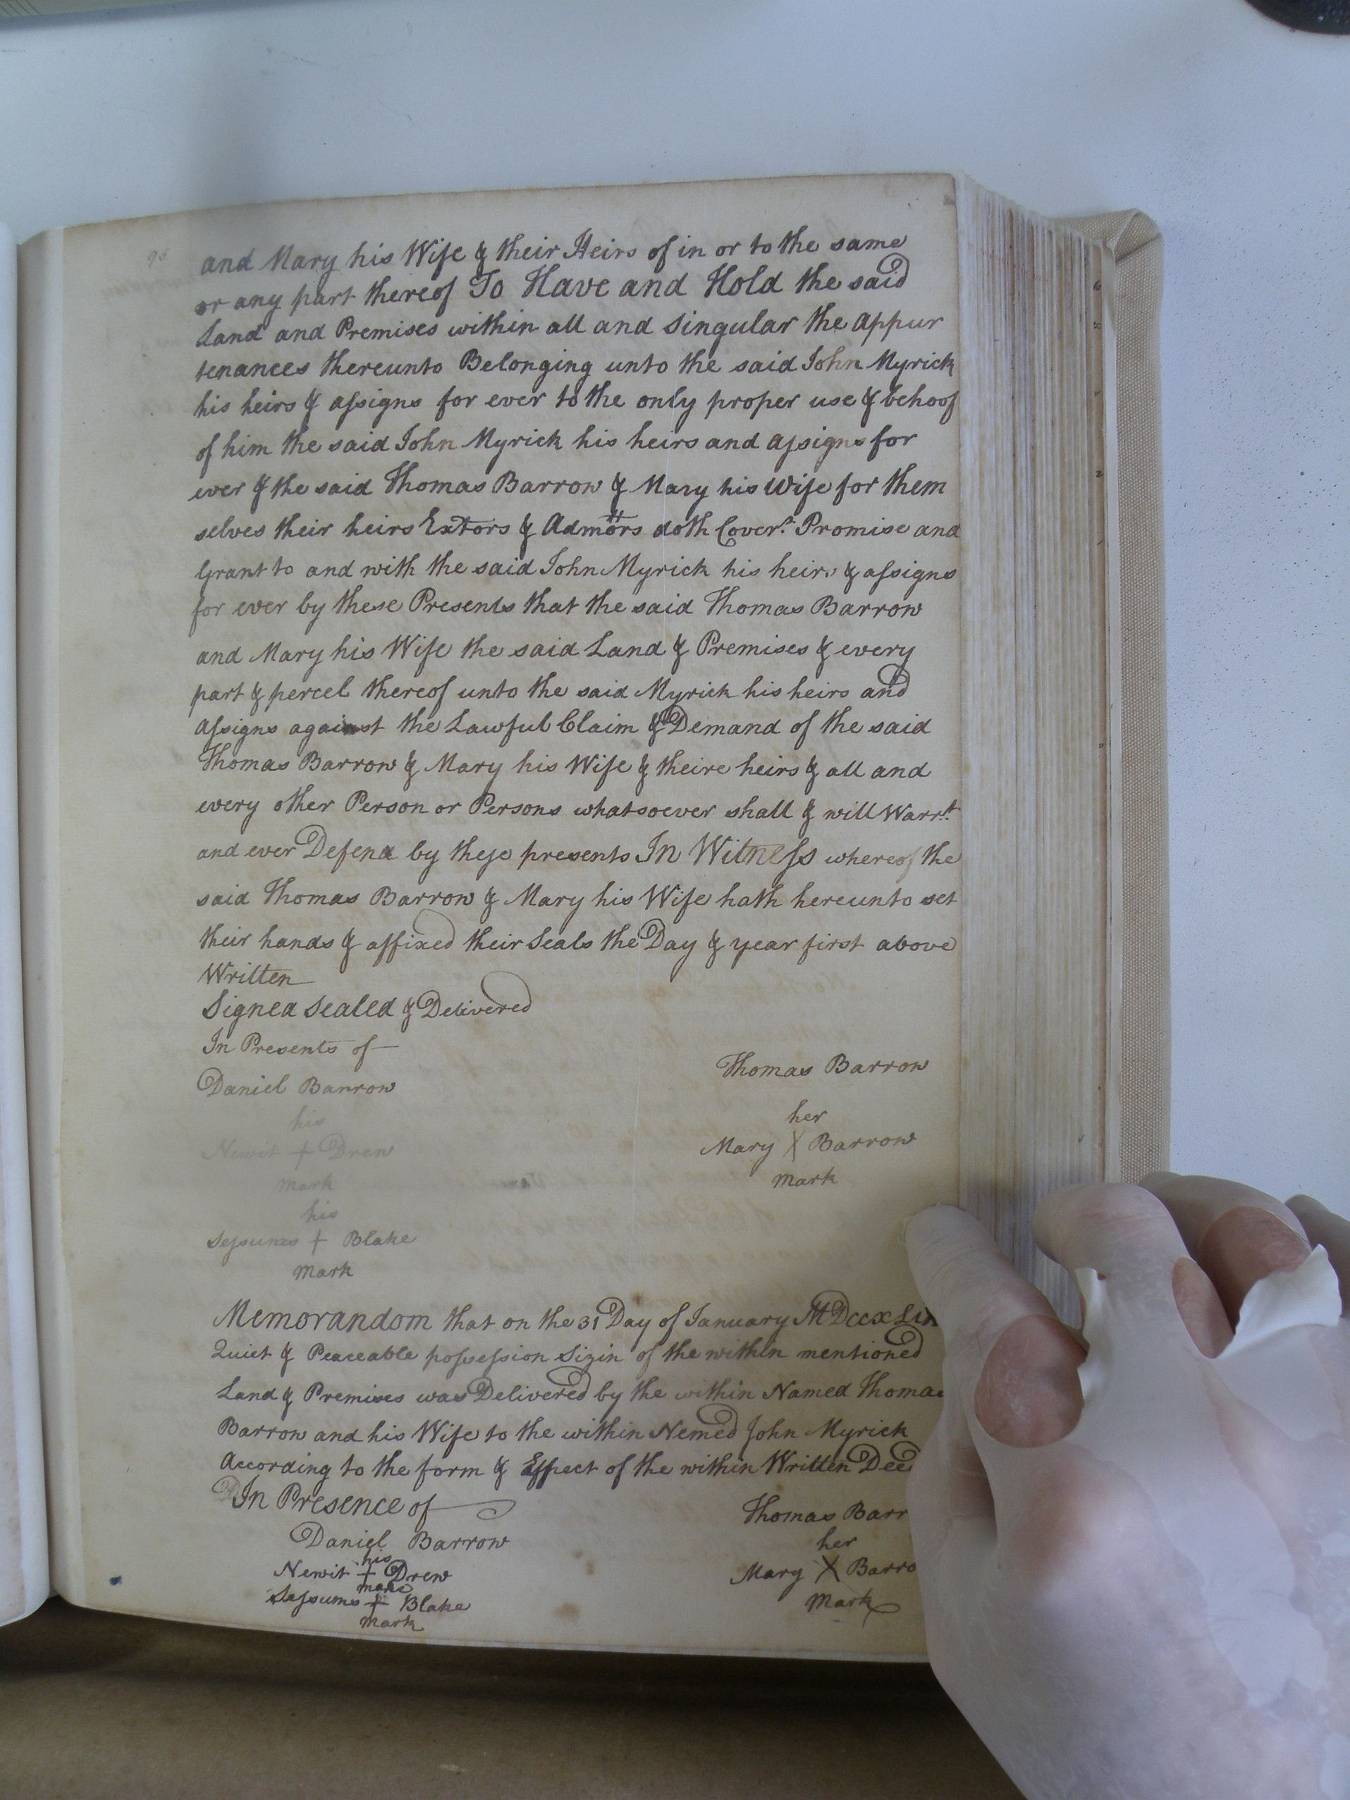 and Mary his Wife & their Heirs of in or to the same
or any part thereof To Have and Hold the said
Land and Premises within all and Singular the Appur
tenances thereunto Belonging unto the said John Myrick
his heirs & assigns for ever to the only proper use & behoof
of him the said John Myrick his heirs and assigns for
ever & the said Thomas Barrow & Mary his Wife for them
selves their heirs Extors & Admors doth Coven.t Promise and
Grant to and with the said John Myrick his heirs & assigns
for ever by these Presents that the said Thomas Barrow
and Mary his Wife the said Land & Premises & every
part & percel thereof unto the said Myrick his heirs and
Assigns against the Lawful Claim & Demand of the said
Thomas Barrow & Mary his Wife & theire heirs & all and
every other Person or Persons whatsoever shall & will Warr.tt
and ever Defend by these presents In Witness whereof the
said Thomas Barrow & Mary his Wife hath hereunto set
their hands & affixed their Seals the Day & year first above
Written
Signed Sealed & Delivered
In Presents of
Thomas Barrow
Daniel Barrow
her
his
Mary X Barrow
Newit + Drew
mark
mark
his
Sessums + Blake
mark
Memorandom that on the 31 Day of January
Quiet & Peaceable possession Sizin of the within mentioned
Land & Premises was Delivered by the within Named Thomas
Barrow and his Wife to the within Nemed John Myrick
According to the form & Effect of the within Written Deed
In Presence of
Thomas Barr
Daniel Barrow
her
his
Mary X Barro
Newit + Drew
mark
mark
Sessums + Blake
mark